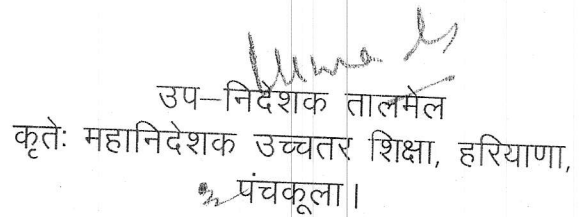 उप–निदेशक तालमेल
कृतेः महानिदेशक उच्चतर शिक्षा, हरियाणा,
पंचकूला।